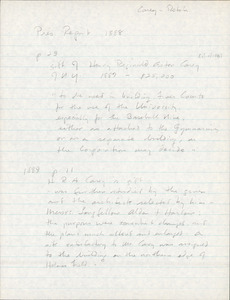 Carey -
Pres. Report 1888
p. 23
Gift of Henry Reginald Astor Carey
1889 - $25,000
to be used in building Fives Courts
for the use of the University,
especially for the Baseball Nine,
either as attached to the Gymnasium
or as a separate building, as
the Corporation may decide.
1889 p. 11
H. R. A. Carey's gift
was further extended by the giver
and the architects selected by him -
Messrs. Longfellow, Alden & Harlow.
the purpose were somewhat changed, and
the plans much altered and enlarged. A
site satisfactory to Mr. Carey was assigned
to the building on the northern edge of
Holmes Field.